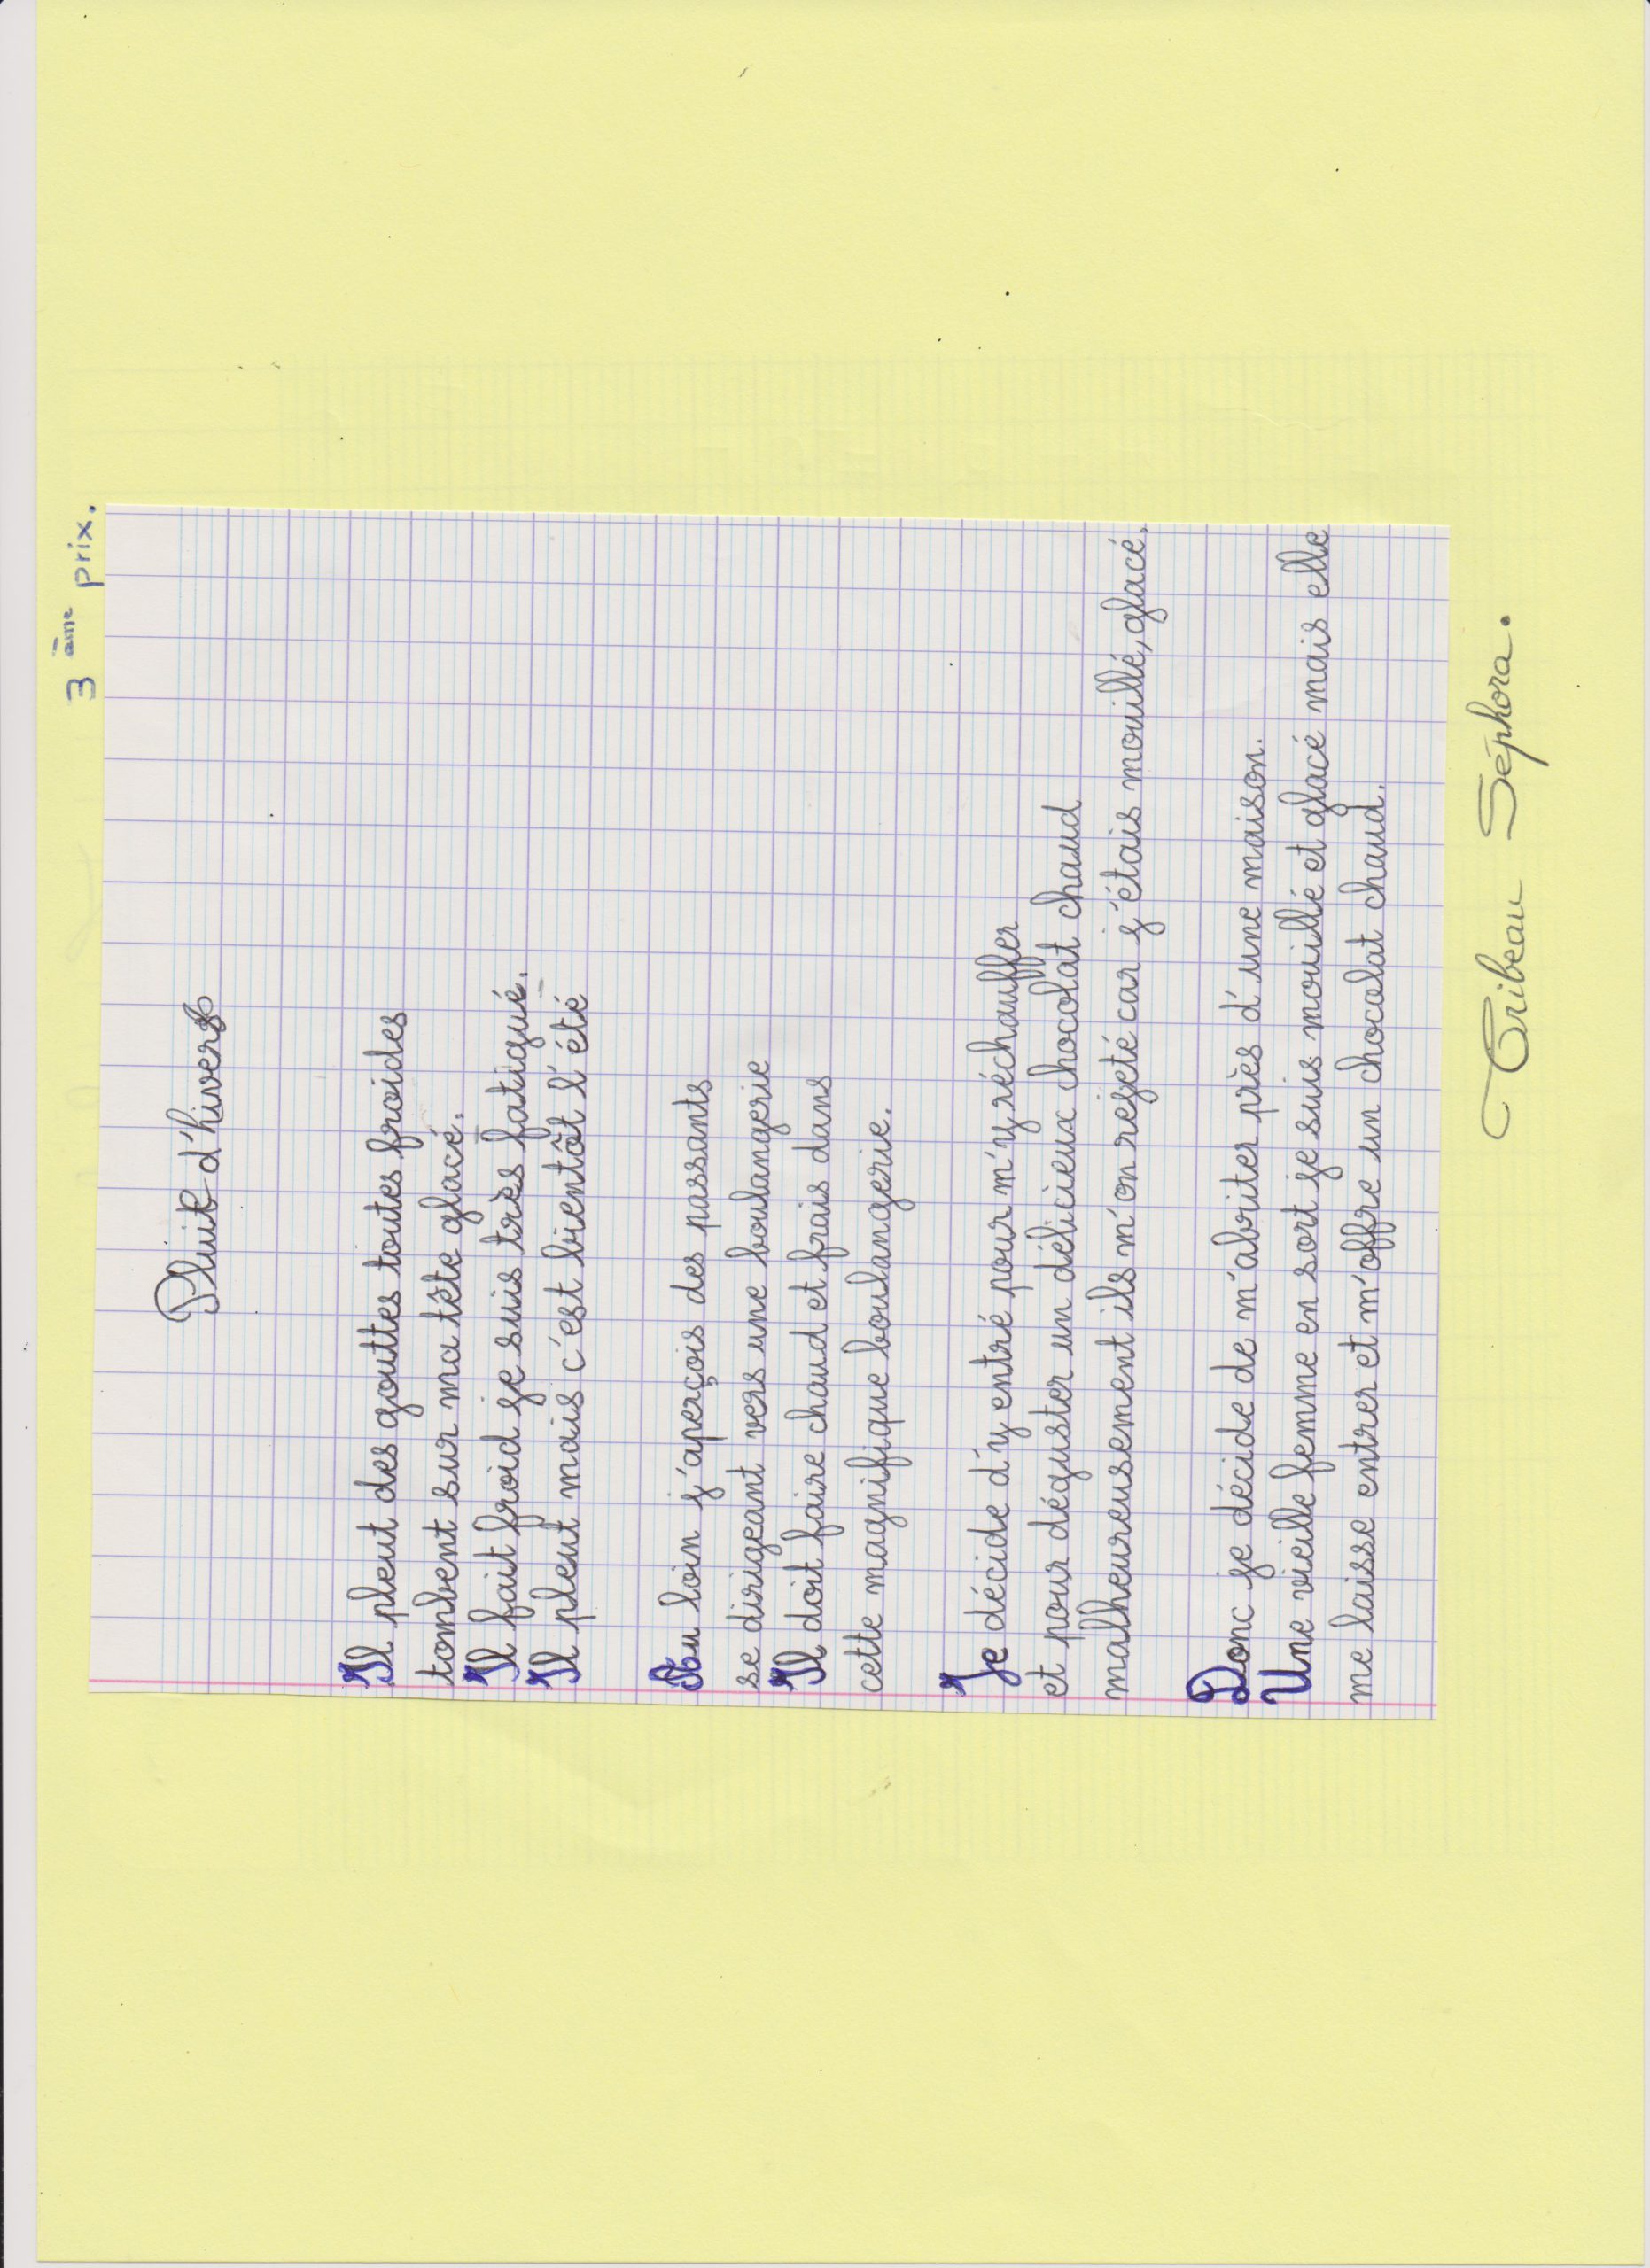 3 ème prix.
Pluie d'hivers
Il pleut des gouttes toutes froides
tombent sur ma tête glacé.
Il fait froid je suis très fatigué.
Il pleut mais c'est bientôt l'été
Au loin j'aperçois des passants
se dirigeant vers une boulangerie
Il doit faire chaud et frais dans
cette magnifique boulangerie.
Je décide d'y entré pour m'y réchauffer
et pour déguster un délicieux chocolat chaud
malheureusement ils m'on rejeté car j'étais mouillé, glacé.
Donc je décide de m'abriter près d'une maison.
Une vieille femme en sort je suis mouillé et glacé mais elle
me laisse entrer et m'offre un chocolat chaud.
Séphora.